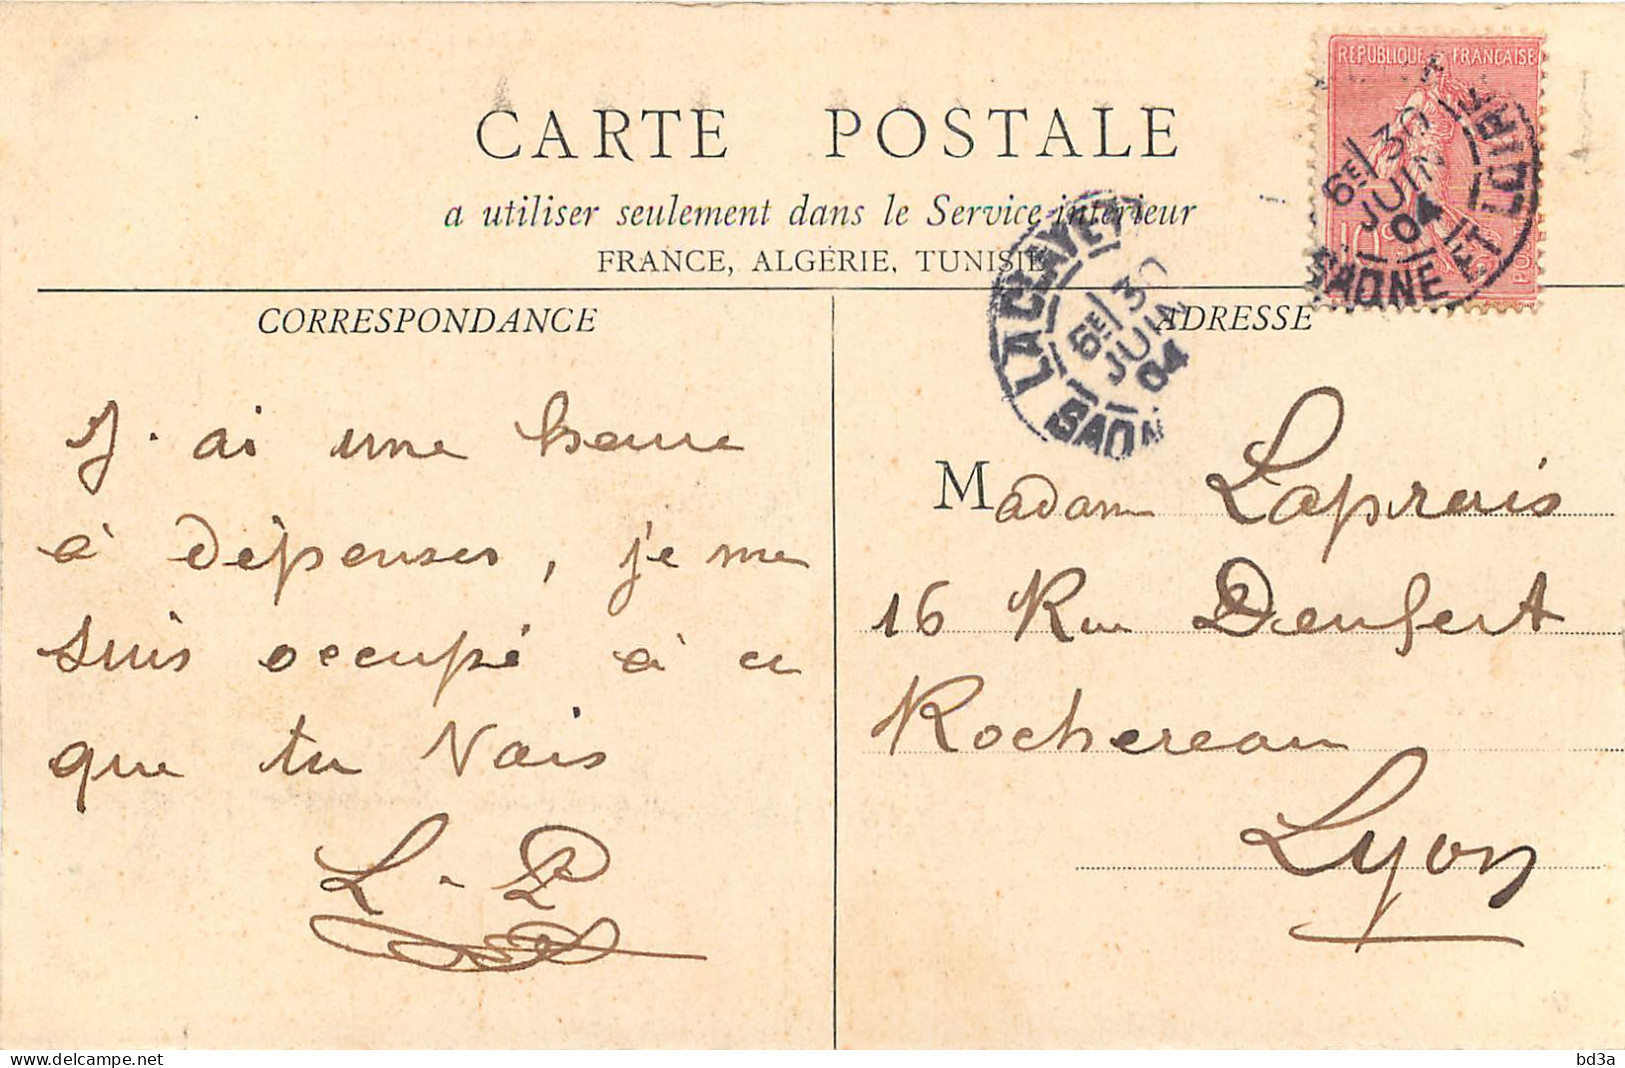 CARTE POSTALE
a utiliser seulement dans le Service intérieur
FRANCE, ALGÉRIE, TUNISIE
CORRESPONDANCE
J'ai une heure
à dépenses, je me
suis occupé à ce
que tu Vois
L-P
ADRESSE
Madame Laprais
16 Rue Denfert
Rochereau
Lyon
RÉPUBLIQUE FRANÇAISE
6E/30
JUIN
04
SAONE ET LOIRE
LA CLAYETTE
6E/30
JUIN
04
SAON
delcampe.net
bd3a